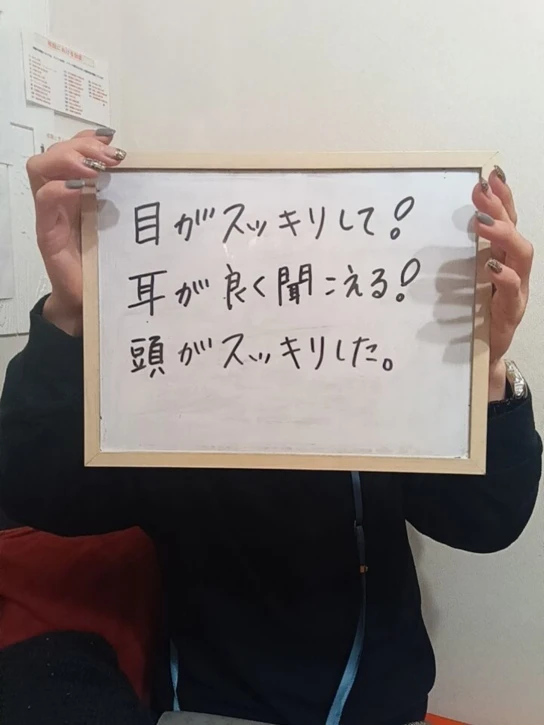 目がスッキリして!
耳が良く聞こえる!
頭がスッキリした。